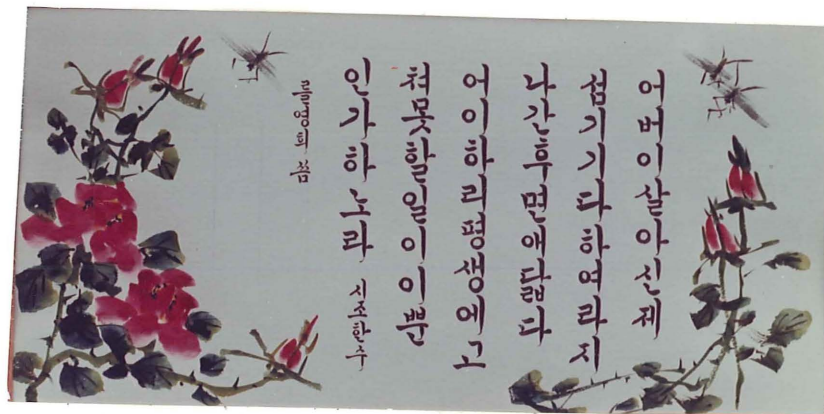 어버이살아신제
섬기기다하여라지
나간후면애닯다
어이하리평생에고
쳐못할일이이뿐
인가하노라 시조한수
씀